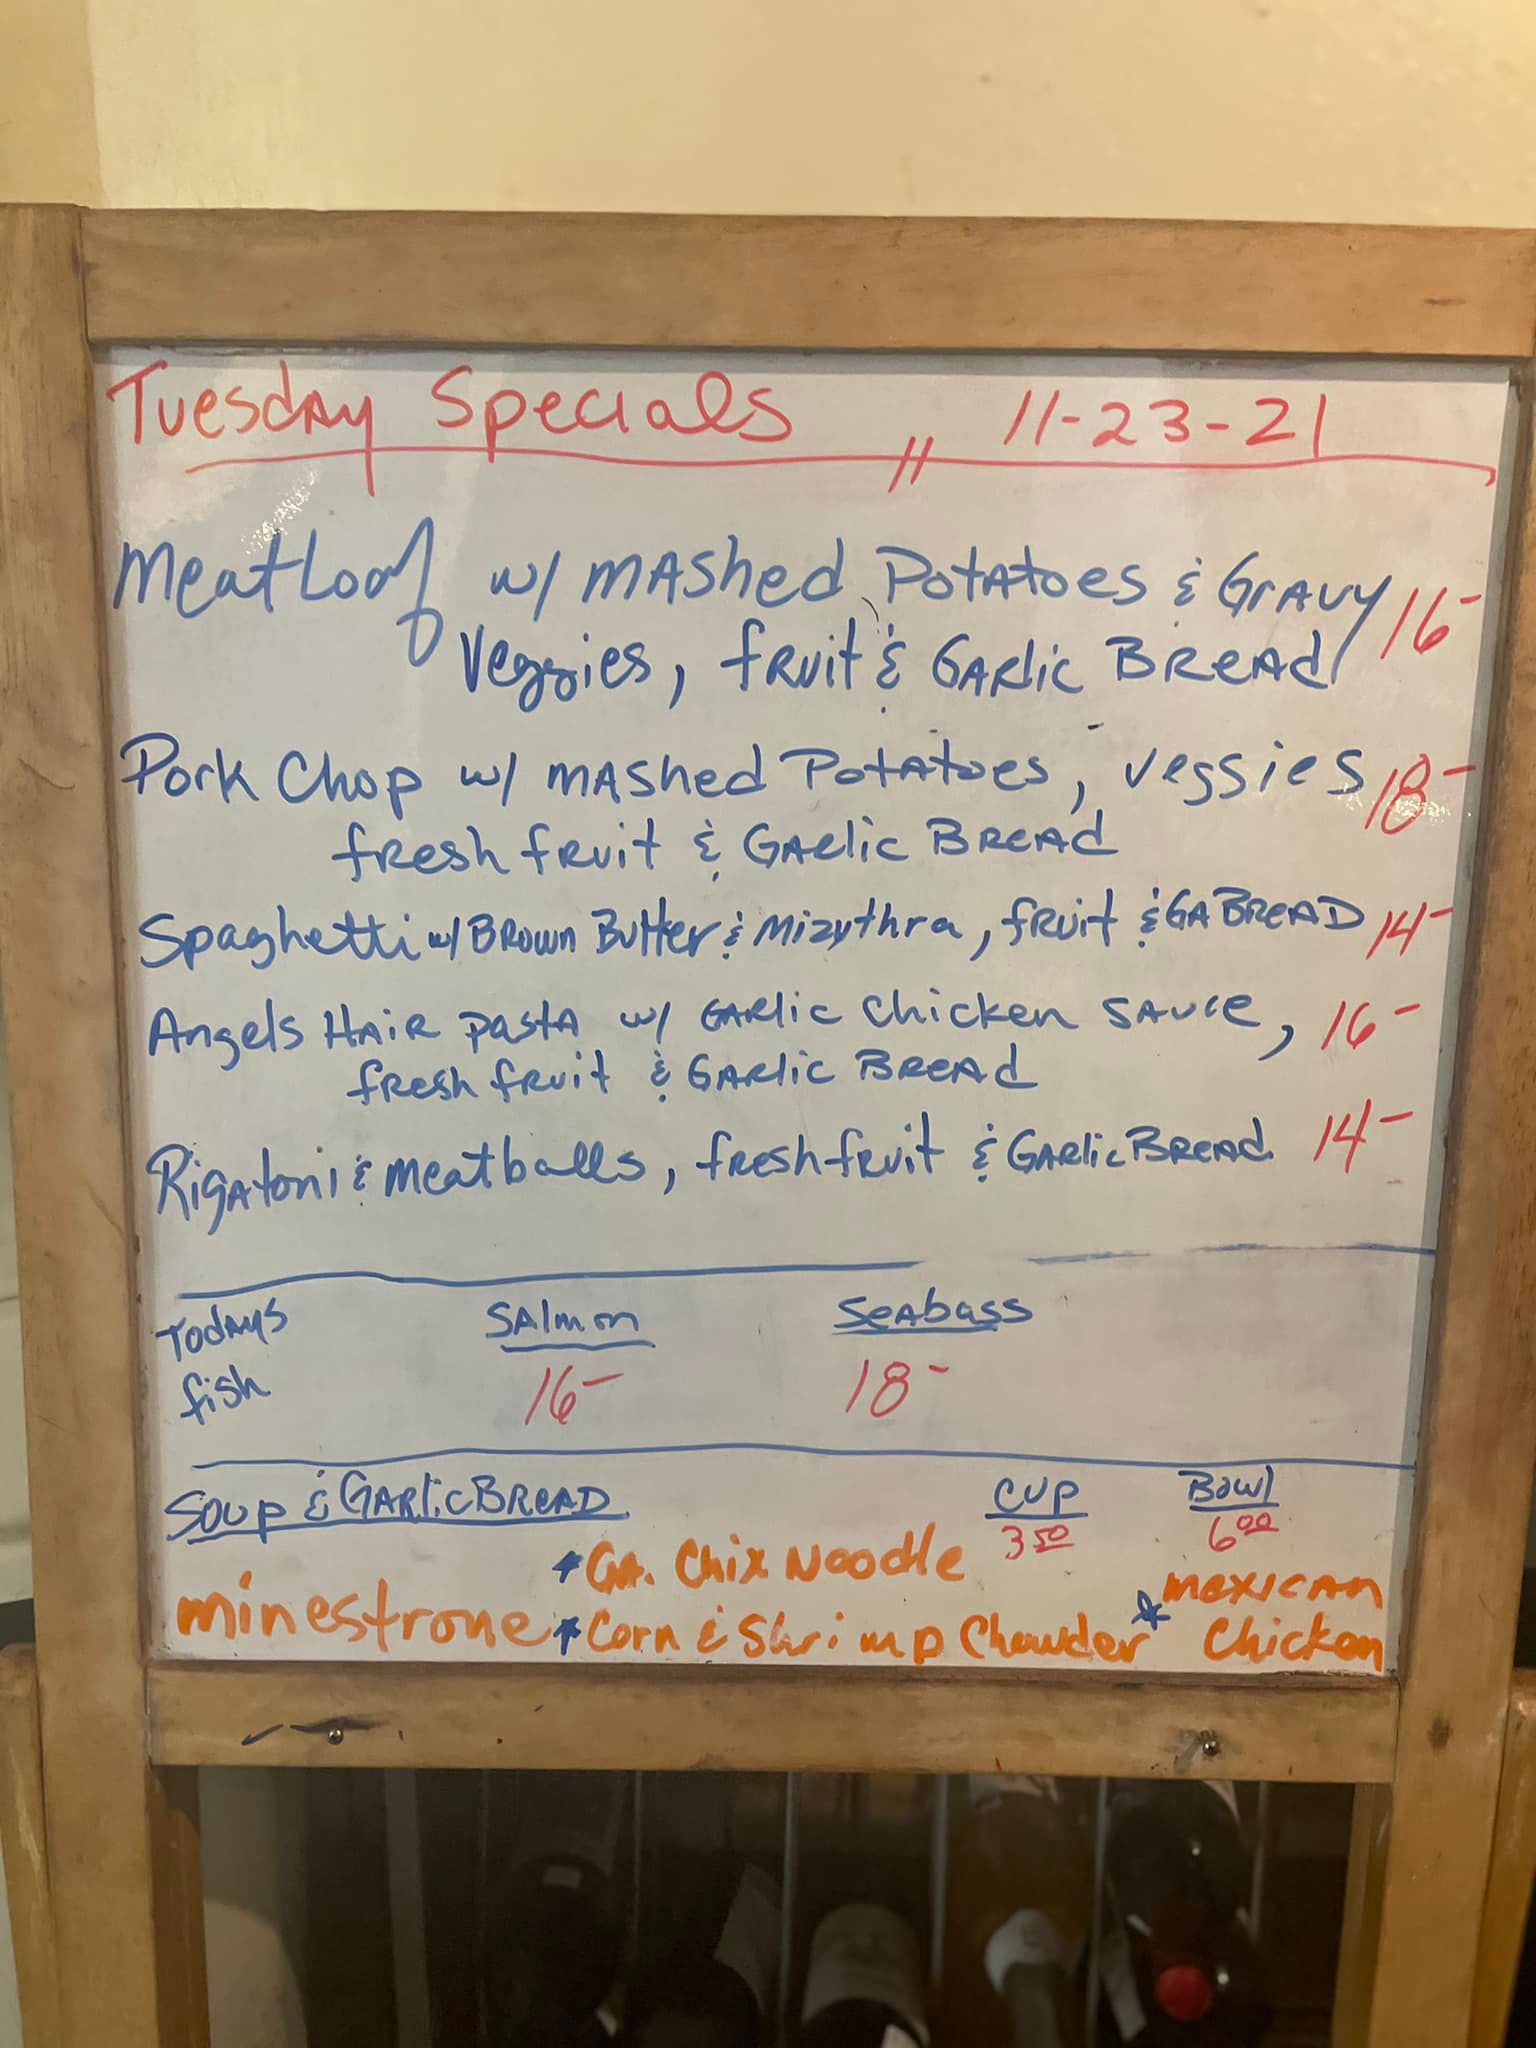 Tuesday Specials // 11-23-21
Meatloaf w/ Mashed Potatoes & Gravy 16-
Veggies, fruit & Garlic Bread
Pork Chop w/ Mashed Potatoes, Veggies 18-
fresh fruit & Garlic Bread
Spaghetti w/ Brown Butter & Mizythra, fruit & GA Bread 14-
Angels Hair Pasta w/ Garlic Chicken Sauce, 16-
fresh fruit & Garlic Bread
Rigatoni & Meatballs, fresh fruit & Garlic Bread 14-
Todays fish
Salmon 16-
Seabass 18-
Soup & Garlic Bread
Cup 3 50
Bowl 6 00
minestrone
* GA. Chix Noodle
* Corn & Shrimp Chowder
* Mexican Chicken